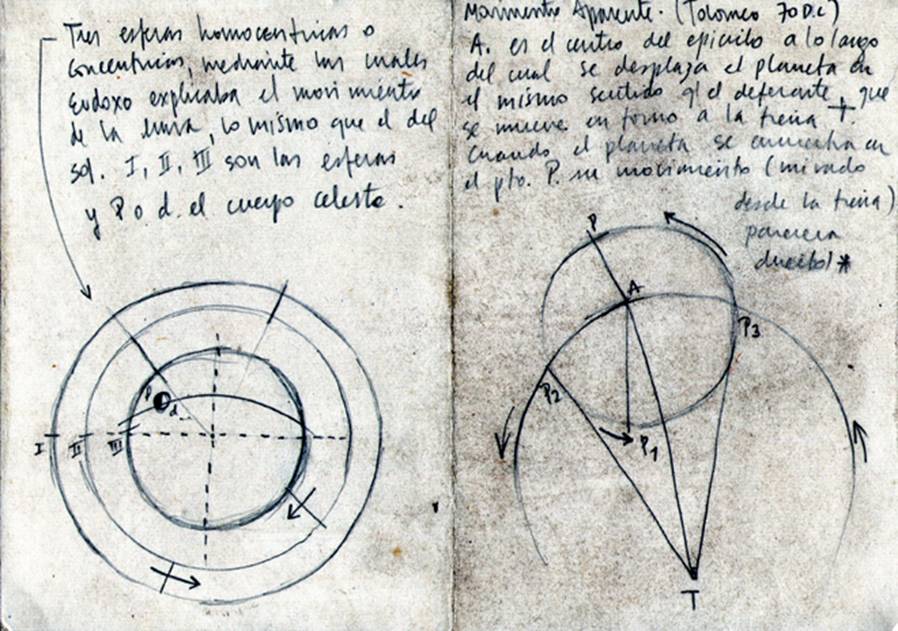 Tres esferas homocentricas o
concentricas, mediante las cuales
Eudoxo explicaba el movimiento
de la luna, lo mismo que el del
sol. I, II, III son las esferas
y P o d. el cuerpo celeste.
P
d
I
II
III
Movimento Aparente. (Tolomeo 70 D.C)
A. es el centro del epiciclo a lo largo
del cual se desplaza el planeta en
el mismo sentido q' el deferente, que
se mueve en torno a la tierra T.
Cuando el planeta se encuentra en
el pto. P. su movimiento (mirado
desde la tierra)
parecera
directo) *
P
A
P3
P2
P1
T